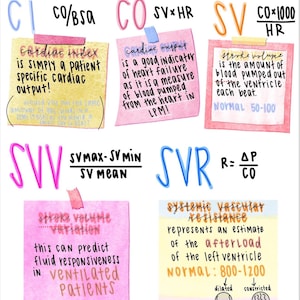 CI CO/BSA
CO SV x HR
SV CO x 1000
HR
Cardiac index
is simply a patient
specific cardiac
output!
Cardiac output
is a good indicator
of heart failure
as it is a measure
of blood pumped
from the heart in
L/MIN!
Stroke volume
is the amount of
blood pumped out
of the ventricle
each beat.
NORMAL 50-100
SVV SV max - SV min
SV mean
SVR R = ΔP
CO
Stroke volume
variation
this can predict
fluid responsiveness
in ventilated
patients
Systemic vascular
resistance
represents an estimate
of the afterload
of the left ventricle
NORMAL: 800-1200
dilated constricted